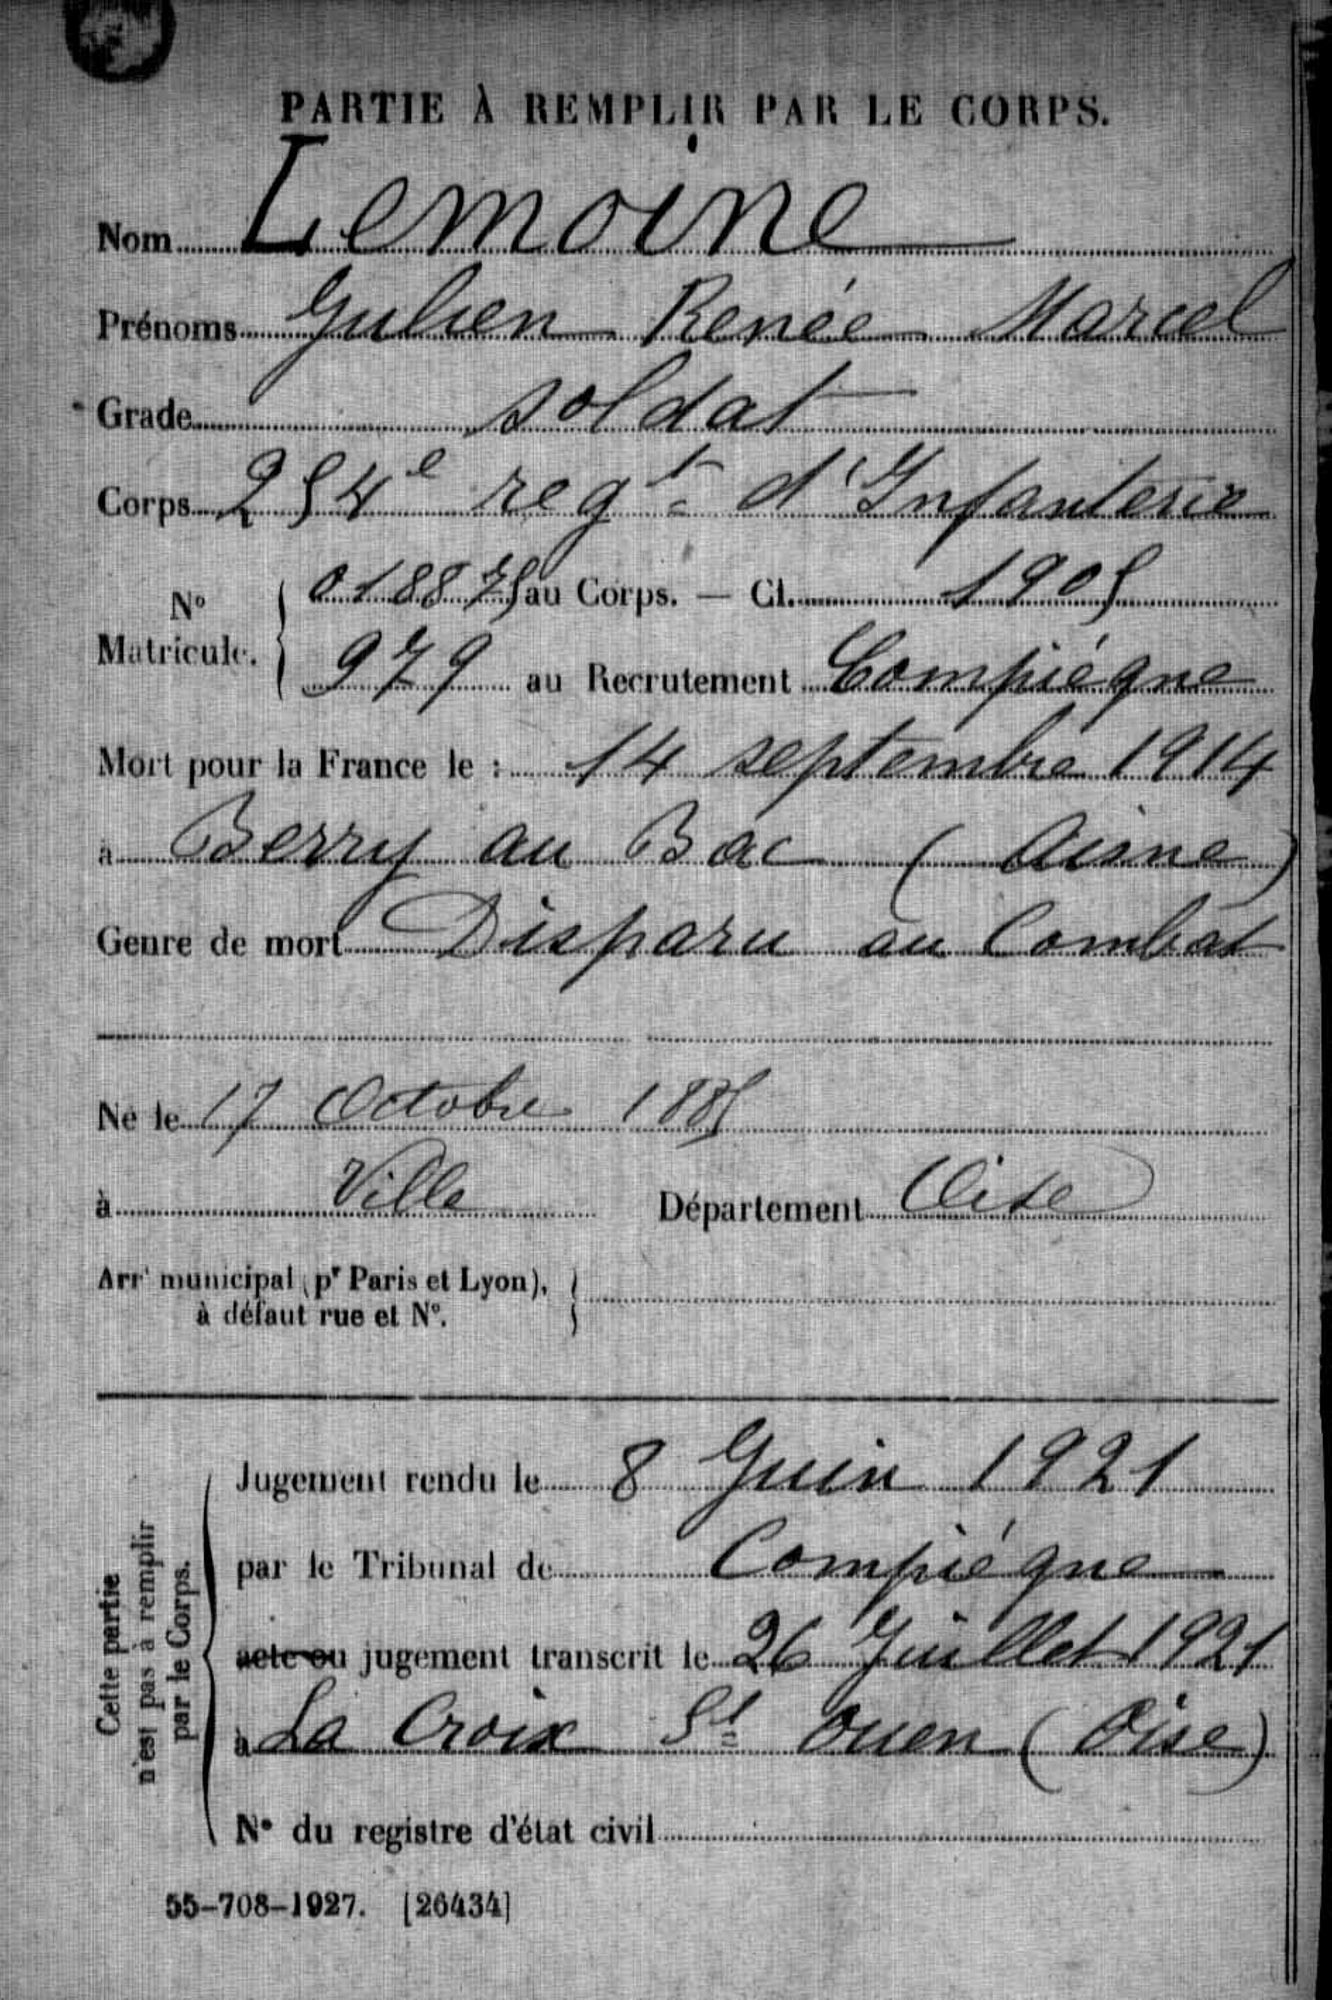 PARTIE À REMPLIR PAR LE CORPS.
Nom Lemoine
Prénoms Julien Renée Marcel
Grade soldat
Corps 254e regt d'Infanterie
No Matricule. 018875 au Corps. — Cl. 1905
979 au Recrutement Compiégne
Mort pour la France le : 14 septembre 1914
à Berry au Bac (Aisne)
Genre de mort Disparu au Combat
Né le 17 Octobre 1885
à Ville Département Oise
Arrt municipal (pr Paris et Lyon),
à défaut rue et No.
Cette partie
n'est pas à remplir
par le Corps.
Jugement rendu le 8 Juin 1921
par le Tribunal de Compiégne
acte ou jugement transcrit le 26 Juillet 1921
à La Croix St Ouen (Oise)
No du registre d'état civil
55-708-1927. [26434]